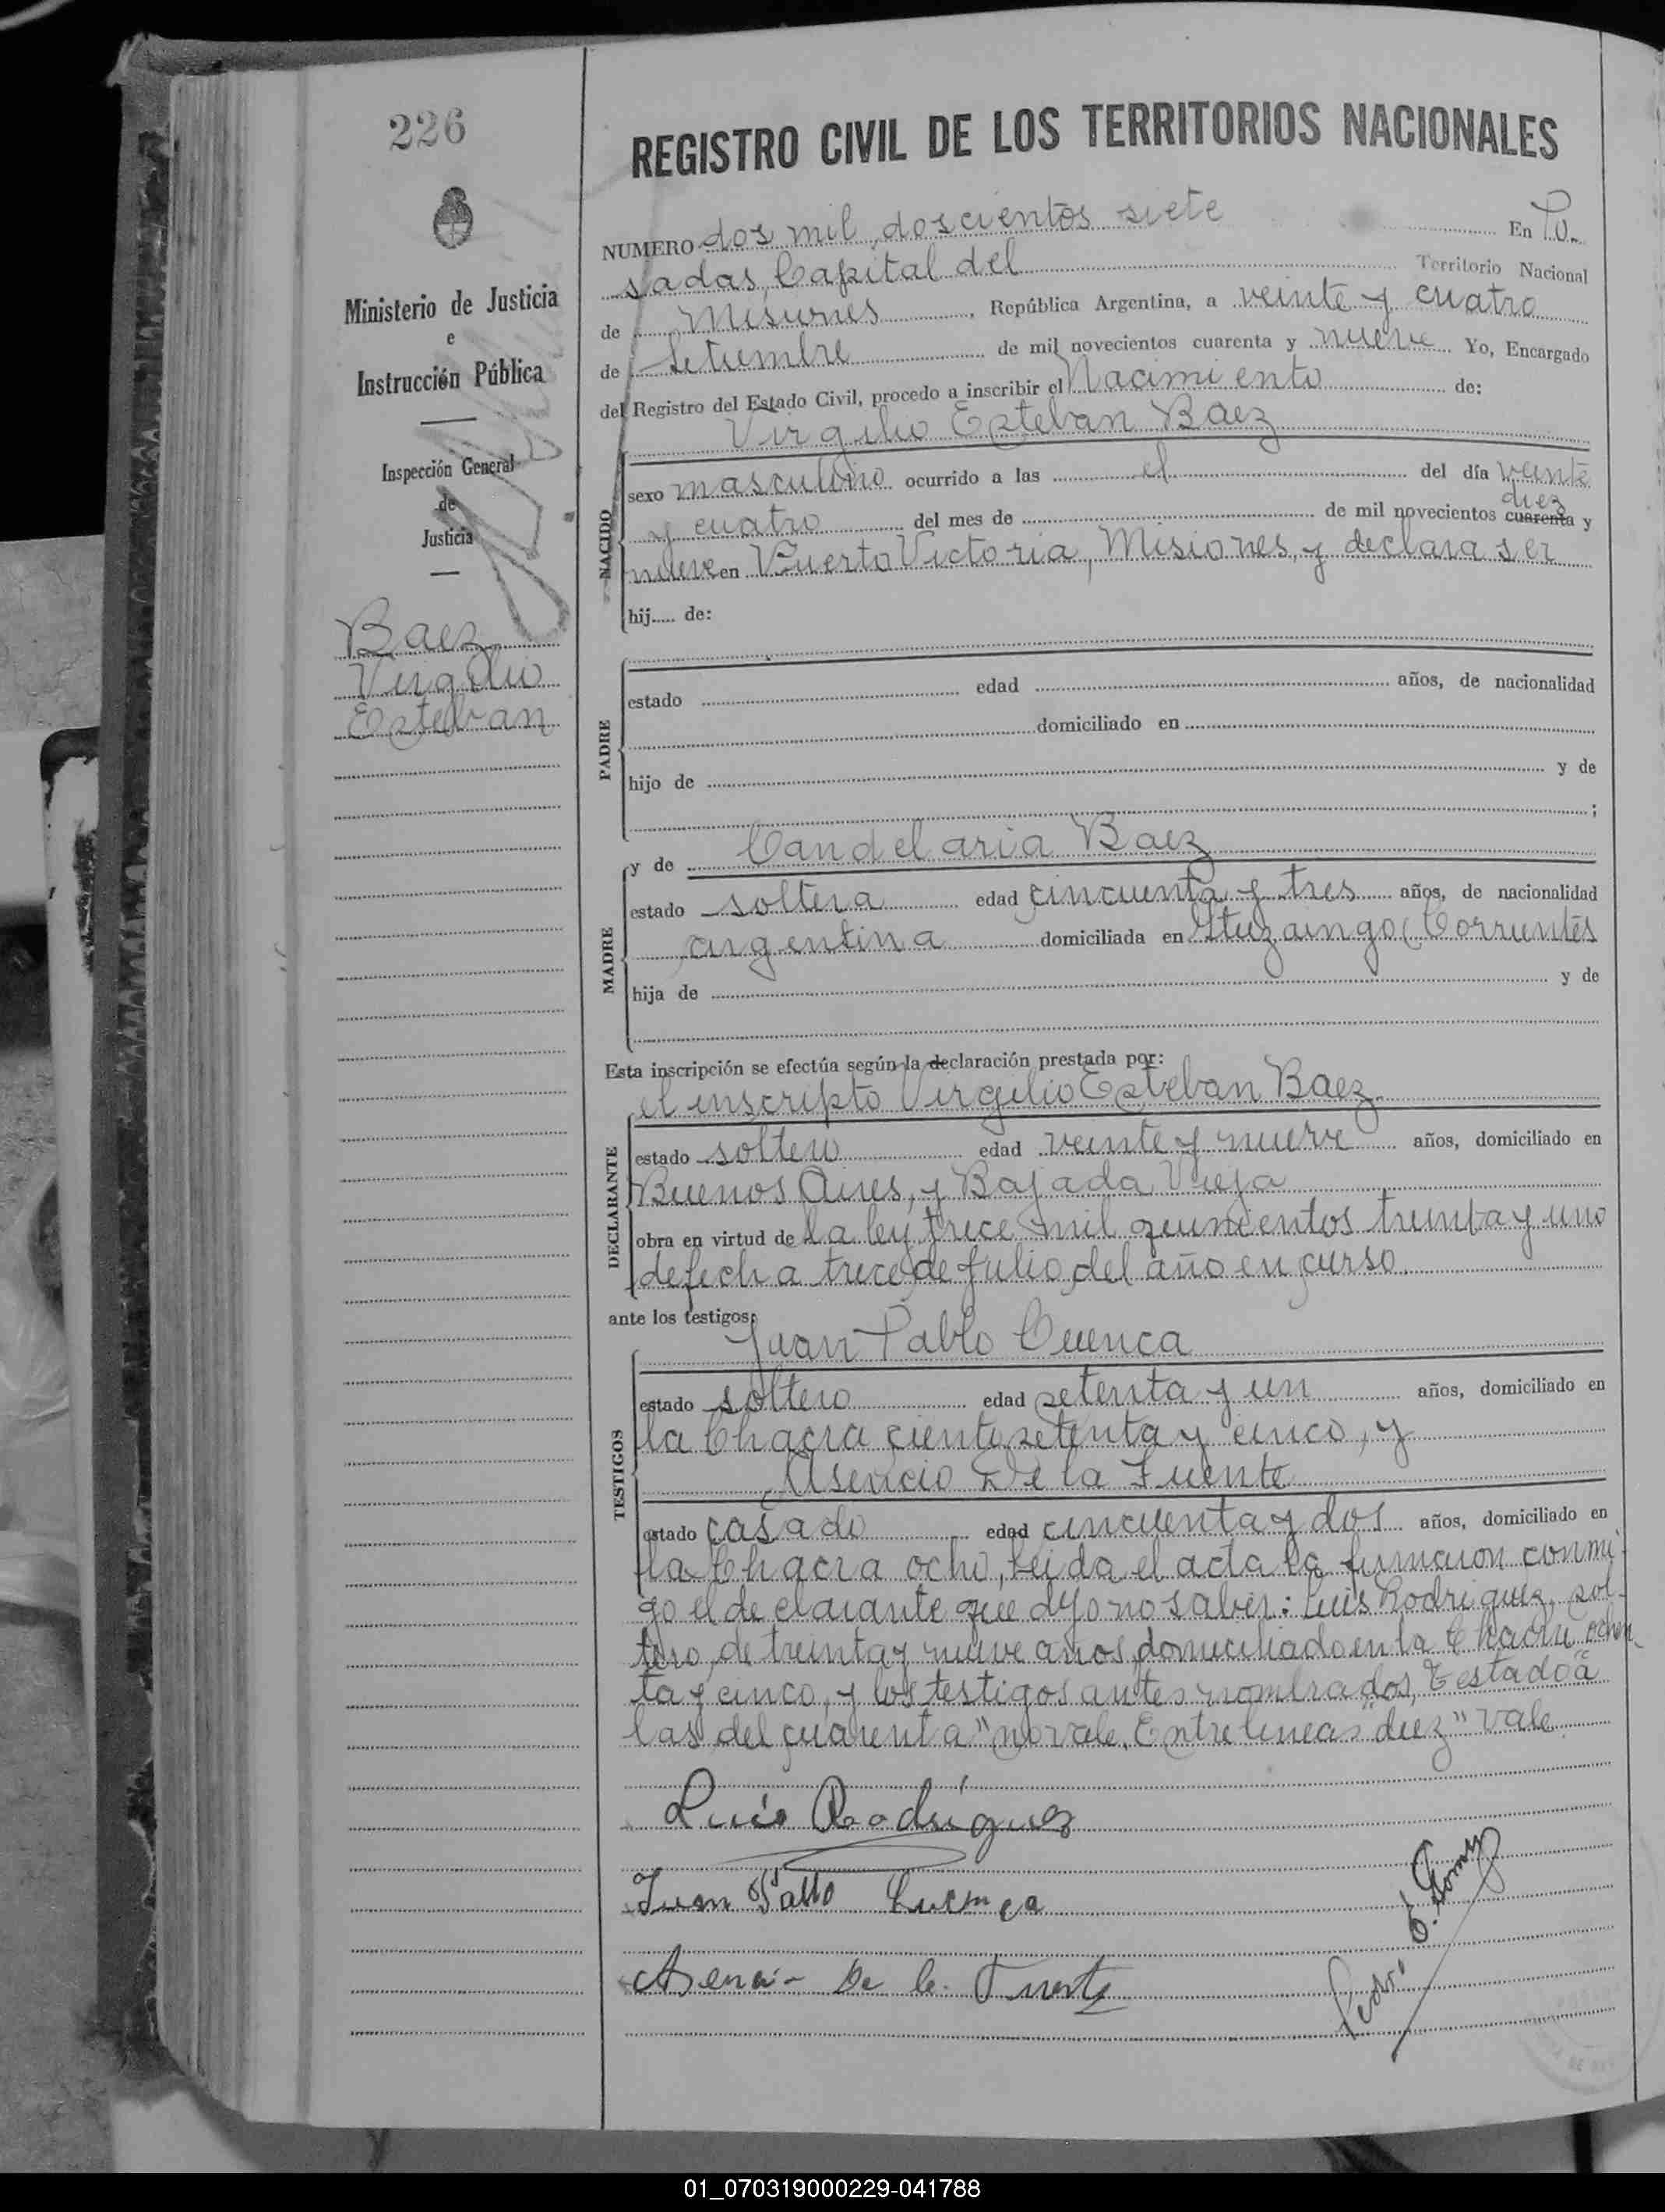 226
REGISTRO CIVIL DE LOS TERRITORIOS NACIONALES
NUMERO dos mil doscientos siete En Po-
sadas, Capital del Territorio Nacional
de Misiones, República Argentina, a veinte y cuatro
de Setiembre de mil novecientos cuarenta y nueve Yo, Encargado
del Registro del Estado Civil, procedo a inscribir el Nacimiento de:
Virgilio Esteban Baez
Ministerio de Justicia
e
Instrucción Pública
Inspección General
de
Justicia
Baez
Virgilio
Esteban
NACIDO
sexo masculino ocurrido a las el del día veinte
diez
y cuatro del mes de de mil novecientos cuarenta y
nueve en Puerto Victoria, Misiones, y declara ser
hij..... de:
PADRE
estado edad años, de nacionalidad
domiciliado en
hijo de y de
;
MADRE
y de Candelaria Baez
estado soltera edad cincuenta y tres años, de nacionalidad
argentina domiciliada en Ituzaingo (Corrientes
hija de y de
Esta inscripción se efectúa según la declaración prestada por:
el inscripto Virgilio Esteban Baez
DECLARANTE
estado soltero edad veinte y nueve años, domiciliado en
Buenos Aires, y Bajada Vieja
obra en virtud de la ley trece mil quinientos treinta y uno
de fecha trece de Julio del año en curso.
ante los testigos:
Juan Pablo Cuenca
TESTIGOS
estado soltero edad setenta y un años, domiciliado en
la Chacra ciento setenta y cinco, y
Asencio De la Fuente
estado casado edad cincuenta y dos años, domiciliado en
la Chacra ocho, Leida el acta la firmaron conmi-
go el declarante que dijo no saber: Luis Rodriguez, sol-
tero, de treinta y nueve años, domiciliado en la Chacra ochen-
ta y cinco, y los testigos antes nombrados, Testado "a
las del cuarenta" no vale. Entre lineas "diez" Vale
Luis Rodríguez
Juan Pablo Cuenca
E. Gomez
Asencio De la Fuente
01_070319000229-041788